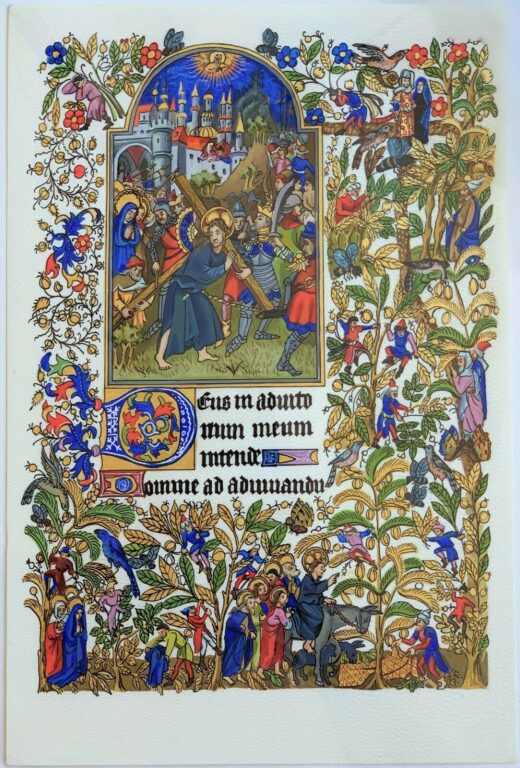 Deus in adiuto
rium meum
intende
Domine ad adiuuandu